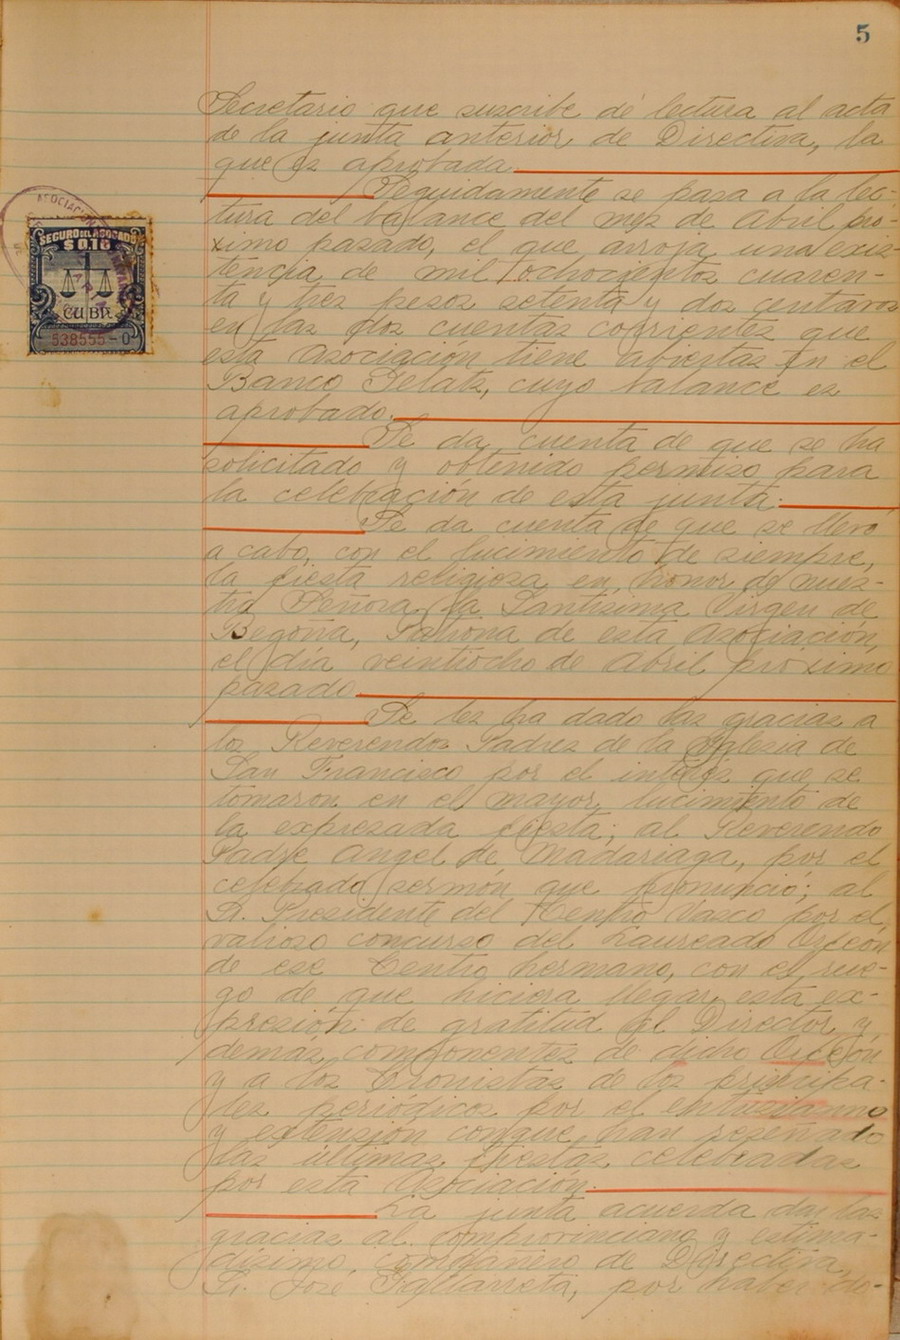 5
Secretario que suscribe dé lectura al acta
de la junta anterior de Directiva, la
que es aprobada.
Seguidamente se pasa a la lec-
tura del balance del mes de Abril pró-
ximo pasado, el que arroja una exis-
tencia de mil ochocientos cuaren-
ta y tres pesos setenta y dos centavos
en las dos cuentas corrientes que
esta Asociación tiene abiertas en el
Banco Gelats, cuyo balance es
aprobado.
Se da cuenta de que se ha
solicitado y obtenido permiso para
la celebración de esta junta.
Se da cuenta de que se llevó
a cabo, con el lucimiento de siempre,
la fiesta religiosa en honor de nues-
tra Señora la Santísima Virgen de
Begoña, Patrona de esta Asociación,
el día veintiocho de Abril próximo
pasado.
Se les ha dado las gracias a
los Reverendos Padres de la Iglesia de
San Francisco por el interés que se
tomaron en el mayor lucimiento de
la expresada fiesta; al Reverendo
Padre Angel de Madariaga, por el
celebrado sermón que pronunció; al
Sr. Presidente del Centro Vasco por el
valioso concurso del Laureado Orfeón
de ese Centro hermano, con el rue-
go de que hiciera llegar esta ex-
presión de gratitud al Director y
demás componentes de dicho Orfeón
y a los Cronistas de los principa-
les periódicos por el entusiasmo
y extensión conque han reseñado
las últimas fiestas celebradas
por esta Asociación.
La junta acuerda dar las
gracias al comprovinciano y estima-
dísimo compañero de Directiva,
Sr. José por haber do-
ASOCIACION
SEGURO DEL ABOGADO
$0.10
CUBA
538555-0